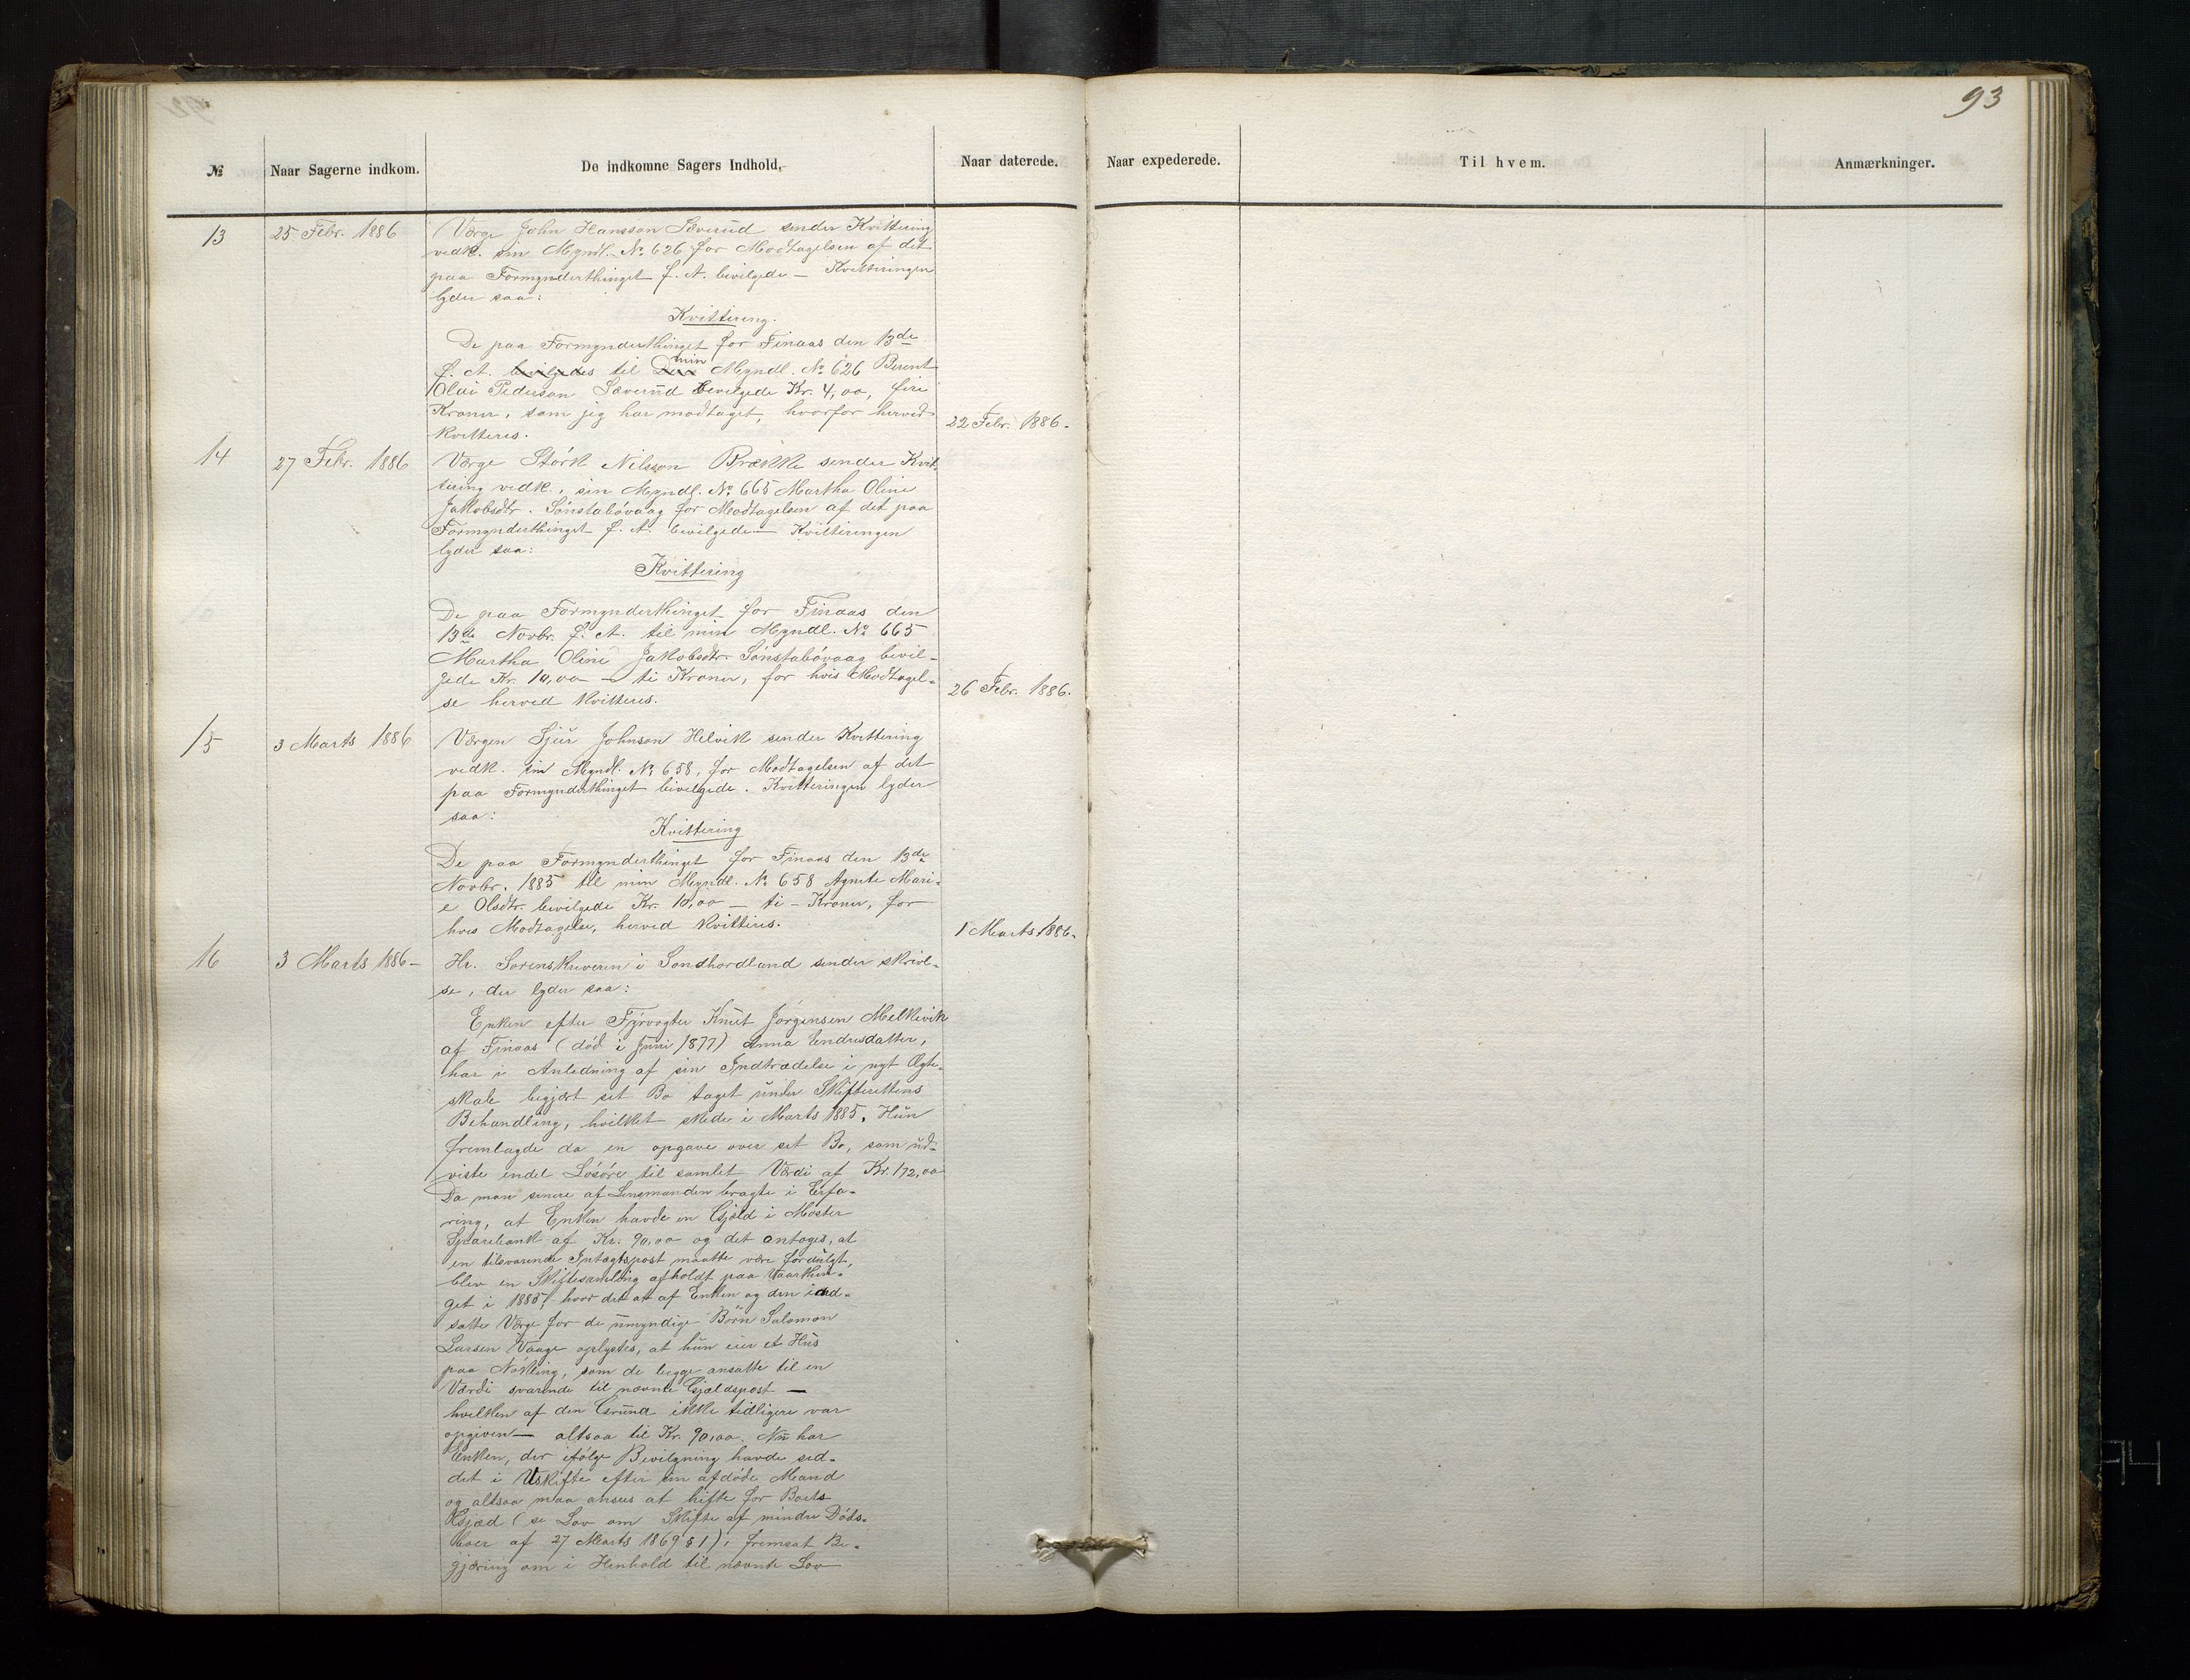 93
№ Naar Sagerne indkom. De indkomne Sagers Indhold. Naar daterede. Naar expederede. Til hvem. Anmærkninger.
13 25 Febr. 1886 Værge John Hansson Sæverud sender Kvittering
vedk. sin Myndl. No 626 for Modtagelsen af det
paa Formynderthinget f. A. bevilgede — Kvitteringen
lyder saa:
Kvittering.
De paa Formynderthinget for Finaas den 13de
f. A. bevilgedes til min Myndl. No 626 Berent
Olai Pederson Sæverud bevilgede Kr. 4,00, fire
Kroner, som jeg har modtaget, hvorfor herved
kvitteres. 22 Febr. 1886.
14 27 Febr. 1886 Værge Størk Nilsson Brække sender Kvit-
tering vedk. sin Myndl. No 665 Martha Oline
Jakobsdtr. Sönstabövaag for Modtagelsen af det paa
Formynderthinget f. A. bevilgede — Kvitteringen
lyder saa:
Kvittering
De paa Formynderthinget for Finaas den
13de Novbr. f. A. til min Myndl. No 665
Martha Oline Jakobsdtr. Sönstabövaag bevil-
gede Kr. 10,00 — ti Kroner, for hvis Modtagel-
se herved kvitteres. 26 Febr. 1886.
15 3 Marts 1886 Værgen Sjur Johnson Hilvik sender Kvittering
vedk. sin Myndl. No 658, for Modtagelsen af det
paa Formynderthinget bevilgede. Kvitteringen lyder
saa:
Kvittering
De paa Formynderthinget for Finaas den 13de
Novbr. 1885 til min Myndl. No 658 Agnete Mari-
e Olsdtr. bevilgede Kr. 10,00 — ti — Kroner, for
hvis Modtagelse, herved kvitteres. 1 Marts 1886.
16 3 Marts 1886 — Hr. Sorenskriveren i Søndhordland sender skrivel-
se, der lyder saa:
Enken efter Fyrvogter Knut Jørgensen Melkevik
af Finaas (død i Juni 1877) Anna Endresdatter,
har i Anledning af sin Indtrædelse i nyt Ægte-
skab begjært sit Bo taget under Skifterettens
Behandling, hvilket skede i Marts 1885. Hun
fremlagde da en opgave over sit Bo, som ud-
viste endel Løsøre til samlet Værdi af Kr. 172,00
Da man senere af Lensmanden bragte i Erfa-
ring, at Enken havde en Gjæld i Moster
Sparebank af Kr. 90,00 og det antages, at
en tilsvarende Intægtspost maatte være fordulgt,
blev en Skiftesamling afholdt paa Vaarthin-
get i 1885, hvor det at af Enken og den ind-
satte Værge for de umyndige Børn Salomon
Larsen Vaage oplystes, at hun eier et Hus
paa Nokling, som de begge ansatte til en
Værdi svarende til nævnte Gjældspost —
hvilken af den Grund ikke tidligere var
opgiven — altsaa til Kr. 90,00. Nu har
Enken, der ifølge Bevilgning havde sid-
det i Uskifte efter sin afdøde Mand
og altsaa maa anses at hifte for Boets
Gjæd (se Lov om Skifte af mindre Døds-
boer af 27 Marts 1869 § 1), fremsat Be-
gjæring om i Henhold til nævnte Lov